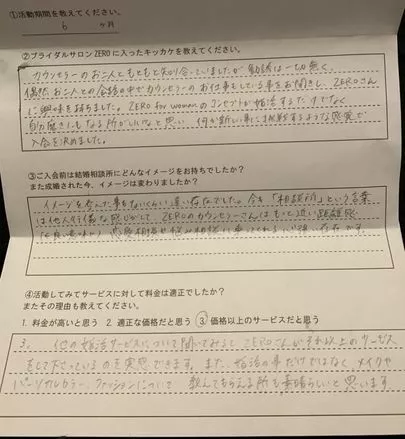 ①活動期間を教えてください。
6 ヶ月
②ブライダルサロンZEROに入ったキッカケを教えてください。
カウンセラーのお二人ともともと知り合っていましたが勧誘は一切無く、
偶然お二人との会話の中でカウンセラーのお仕事をしている事をお聞きし、ZEROさん
に興味を持ちました。ZERO for womanのコンセプトが婚活するだけでなく
自分磨きにもなる所がいいなと思い、何か新しい事に挑戦するような感覚で
入会を決めました。
③ご入会前は結婚相談所にどんなイメージをお持ちでしたか?
また成婚された今、イメージは変わりましたか?
イメージを持った事もないくらい遠い存在でした。今も「相談所」という言葉
は他人行儀な感じがして、ZEROのカウンセラーさんはもっと近い距離感
(良い意味で) 恋愛相談や悩み相談に乗ってくれる心強い存在です。
④活動してみてサービスに対して料金は適正でしたか?
またその理由も教えてください。
1. 料金が高いと思う 2. 適正な価格だと思う ③ 価格以上のサービスだと思う
3. 他の婚活サービスについて聞いてみると ZEROさんがそれ以上のサービス
をして下さっているのを実感できます。また、婚活の事だけではなく メイクや
パーソナルカラー、ファッションについて 教えてもらえる所も素晴らしいと思います